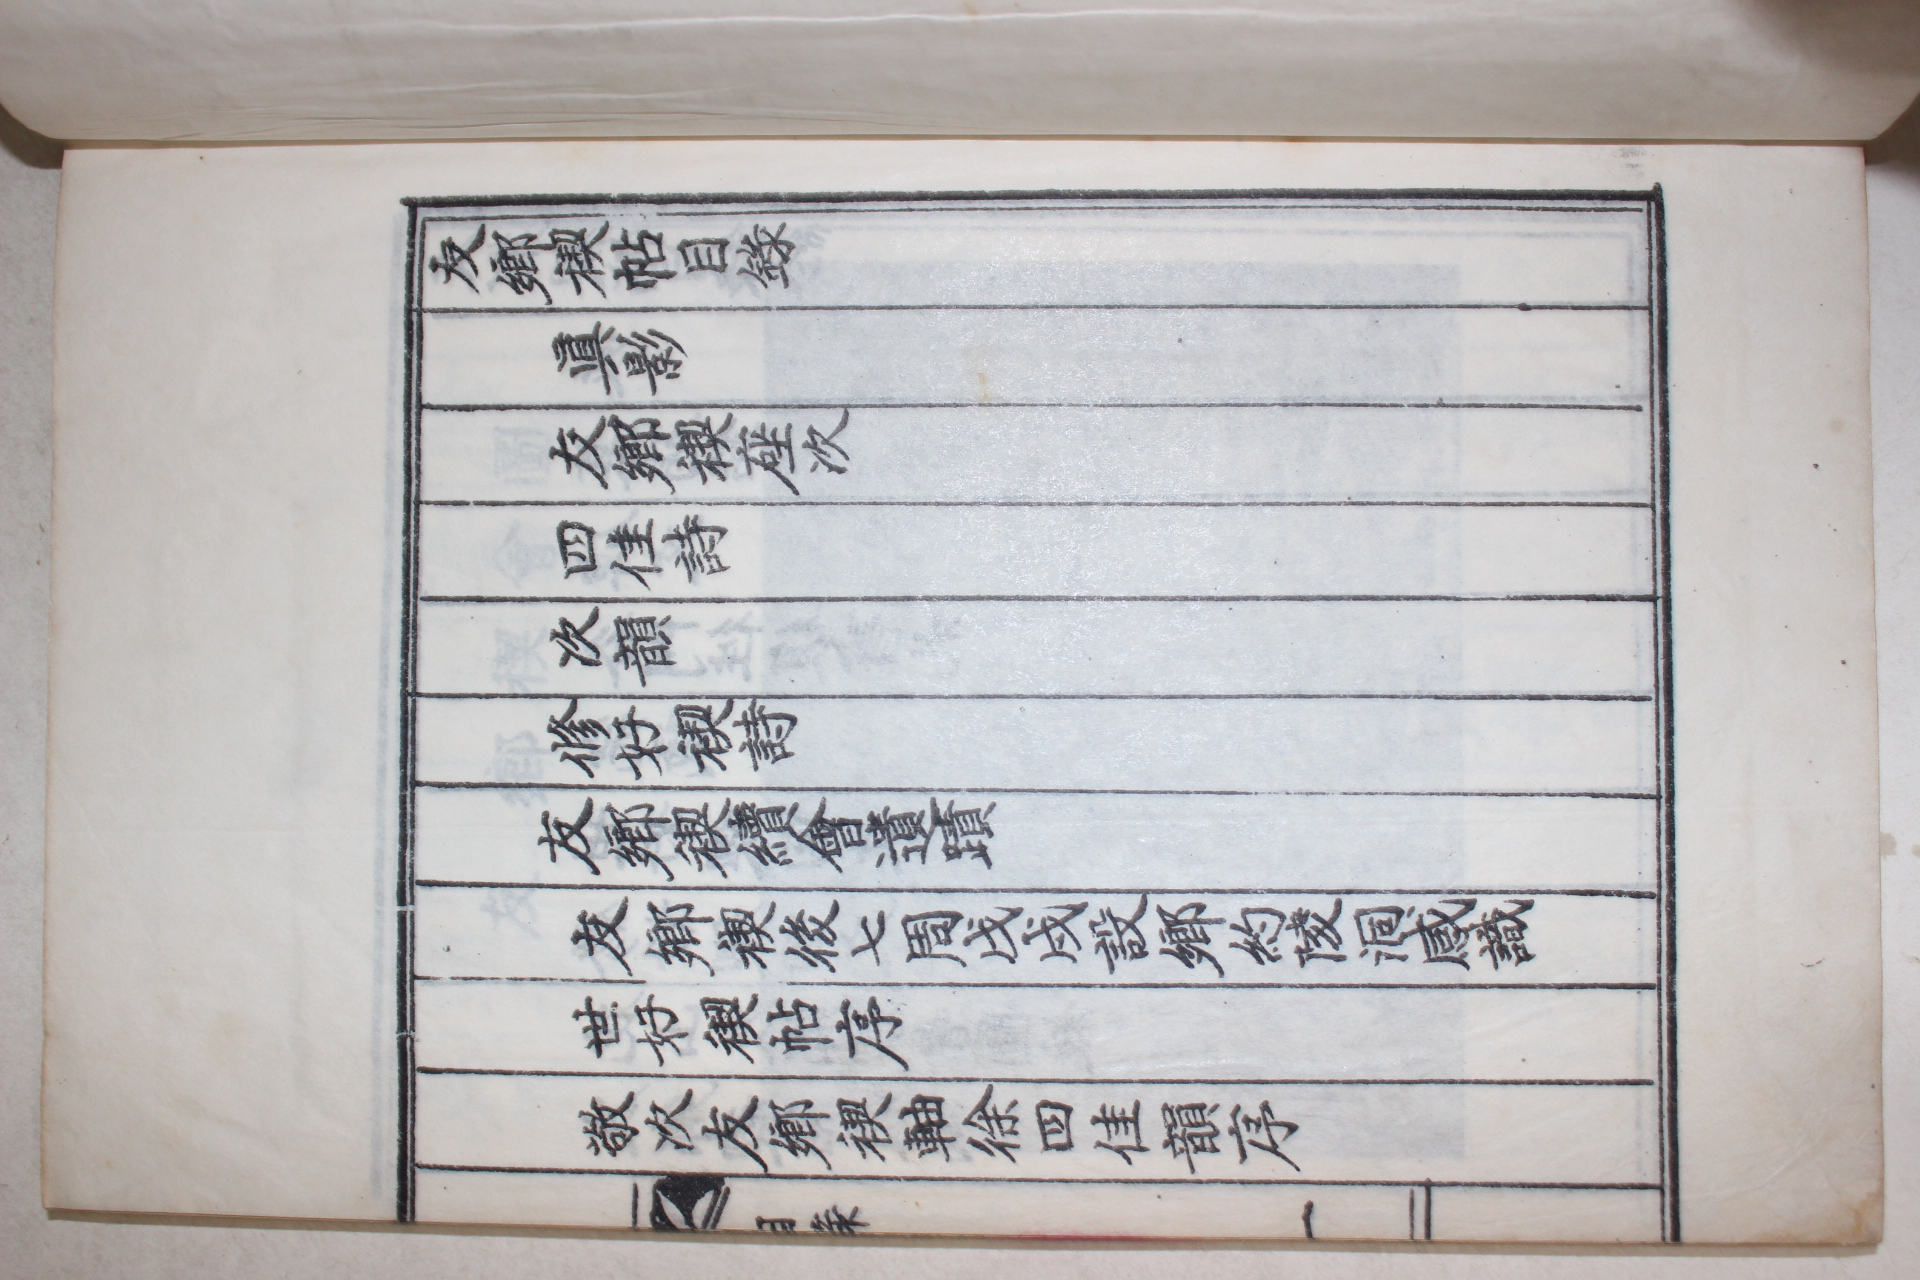 友鄉禊帖目錄
眞影
友鄉禊座次
四佳詩
次韻
修好禊詩
友鄉禊續會遺蹟
友鄉禊後七周戊戌設鄉約陵洞感識
世好禊帖序
敬次友鄉禊軸徐四佳韻序
目錄
一